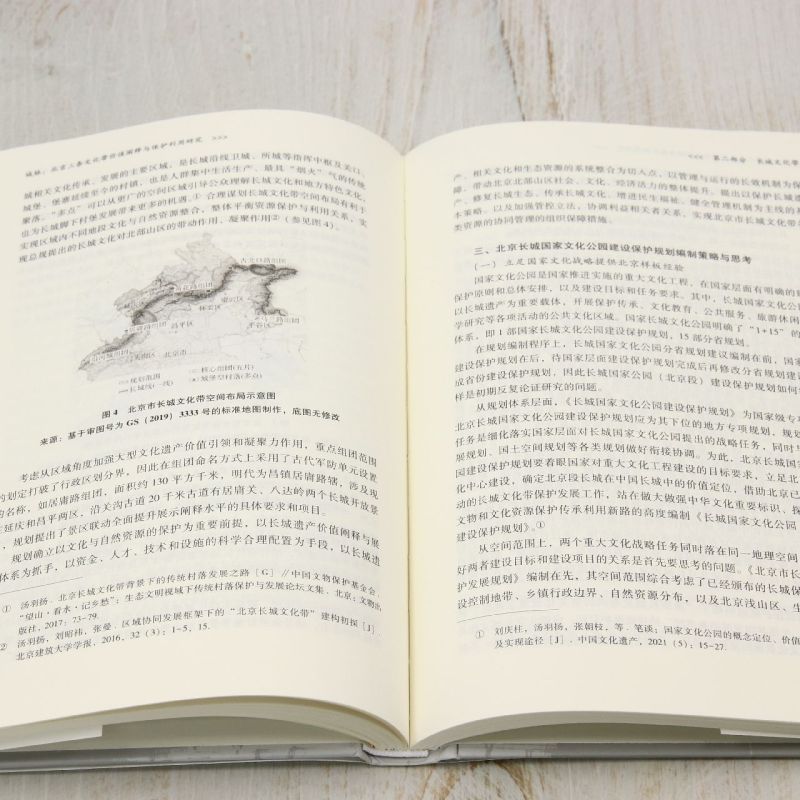 城脉：北京三条文化带价值阐释与保护利用研究 >>>
城相关文化传承、发展的主要区域，是长城沿线卫城、所城等指挥中枢及关口、
城堡、堡寨延续至今的村镇，也是人群集中生活生产、最具“烟火”气的传统
聚落。“多点”可以从更广的空间区域引导公众理解长城文化和地方特色文化，
也为长城脚下村堡发展带来更多的机遇。① 合理谋划长城文化带空间布局有利于
实现区域内不同地段文化与自然资源整合，整体平衡资源保护与利用关系，实
现总规提出的长城文化对北部山区的带动作用、凝聚作用②（参见图4）。
古北口路组团
怀柔区
密云区
昌平区
平谷区
北京市
规划范围
核心组团(五片)
长城线(一线)
城堡型村落(多点)
图 4 北京市长城文化带空间布局示意图
来源：基于审图号为 GS（2019）3333 号的标准地图制作，底图无修改
考虑从区域角度加强大型文化遗产价值引领和凝聚力作用，重点组团范围
的划定打破了行政区划分界，因此在组团命名方式上采用了古代军防单元设置
的名称，如居庸路组团，面积约 130 平方千米，明代为昌镇居庸路辖，涉及现
延庆和昌平两区，沿关沟古道 20 千米古道有居庸关、八达岭两个长城开放景
，规划提出了景区联动全面提升展示阐释水平的具体要求和项目。
规划确立以文化与自然资源的保护为重要前提，以长城遗产价值阐释与展
体系为抓手，以资金、人才、技术和设施的科学合理配置为手段，以长城遗
① 汤羽扬．北京长城文化带背景下的传统村落发展之路［G］//中国文物保护基金会．
“望山·看水·记乡愁”：生态文明视域下传统村落保护与发展论坛文集．北京：文物出
版社，2017：73-79.
② 汤羽扬，刘昭祎，张曼．区域协同发展框架下的“北京长城文化带”建构初探［J］.
北京建筑大学学报，2016，32（3）：1-5，15.
<<< 第二部分 长城文化带
产、相关文化和生态资源的系统整合为切入点，以管理与运行的长效机制为保
障，带动北京北部山区社会、文化、经济活力的整体提升。提出以保护长城
产、修复长城生态、传承长城文化、增进民生福祉、健全管理机制为主线的基
本策略，以及加强管控立法，协调利益相关者关系，实现北京市长城文化带各
类资源的协同管理的组织保障措施。
三、北京长城国家文化公园建设保护规划编制策略与思考
（一）立足国家文化战略提供北京样板经验
国家文化公园是国家推进实施的重大文化工程，在国家层面有明确的
保护原则和总体安排，以及建设目标和任务要求。其中，长城国家文化公
以长城遗产为重要载体，开展保护传承、文化教育、公共服务、旅游休闲
学研究等各项活动的公共文化区域。国家长城文化公园明确了“1+15”的
体系，即 1 部国家长城文化公园建设保护规划，15 部分省规划。
在规划编制程序上，长城国家文化公园分省规划建议编制在前，国家
建设保护规划在后，待国家层面建设保护规划完成后再修改分省规划建
成省份建设保护规划，因此长城国家公园（北京段）建设保护规划如何
样是初期反复论证研究的问题。
从规划体系层面，《长城国家文化公园建设保护规划》为国家级专
北京长城国家文化公园建设保护规划应为其下位的地方专项规划，规
任务是细化落实国家层面对长城国家文化公园提出的战略任务，同时与
展规划、国土空间规划等各类规划做好衔接协调。为此，北京长城国
园建设保护规划要着眼国家对重大文化工程建设的目标要求，立足北
化中心建设，确定北京段长城在中国长城中的价值定位，借助北京已
动的长城文化带保护发展工作，站在做大做强中华文化重要标识、探
文物和文化资源保护传承利用新路的高度编制《长城国家文化公园
建设保护规划》。①
从空间范围上，两个重大文化战略任务同时落在同一地理空间
好两者建设目标和建设项目的关系是首先要思考的问题。《北京市长
护发展规划》编制在先，其空间范围综合考虑了已经颁布的长城保
设控制地带、乡镇行政边界、自然资源分布，以及北京浅山区、生
① 刘庆柱，汤羽扬，张朝枝，等．笔谈：国家文化公园的概念定位、价值
及实现途径［J］．中国文化遗产，2021（5）：15-27.